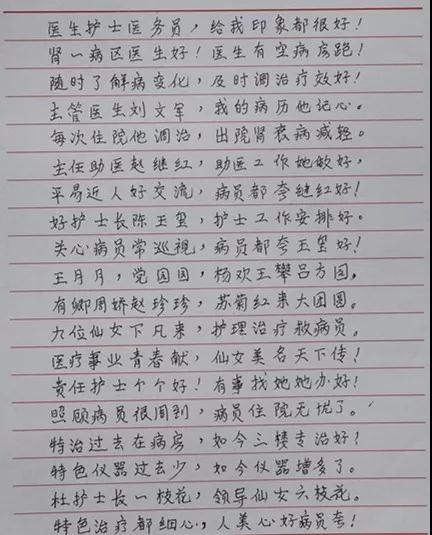 医生护士医务员，给我印象都很好！
肾一病区医生好！医生有空病房跑！
随时了解病变化，及时调治疗效好！
主管医生刘文军，我的病历他记心。
每次住院他调治，出院肾衰病减轻。
主任助医赵继红，助医工作她做好，
平易近人好交流，病员都夸继红好！
好护士长陈玉玺，护士工作安排好。
关心病员常巡视，病员都夸玉玺好！
王月月，党园园，杨欢王攀吕方园，
有卿周娇赵珍珍，苏菊红来大团圆。
九位仙女下凡来，护理治疗救病员。
医疗事业青春献，仙女美名天下传！
责任护士个个好！有事找她她办好！
照顾病员很周到，病员住院无忧了。
特治过去在病房，如今三楼专治好！
特色仪器过去少，如今仪器增多了。
杜护士长一枝花，领导仙女六枝花。
特色治疗都细心，人美心好病员夸！